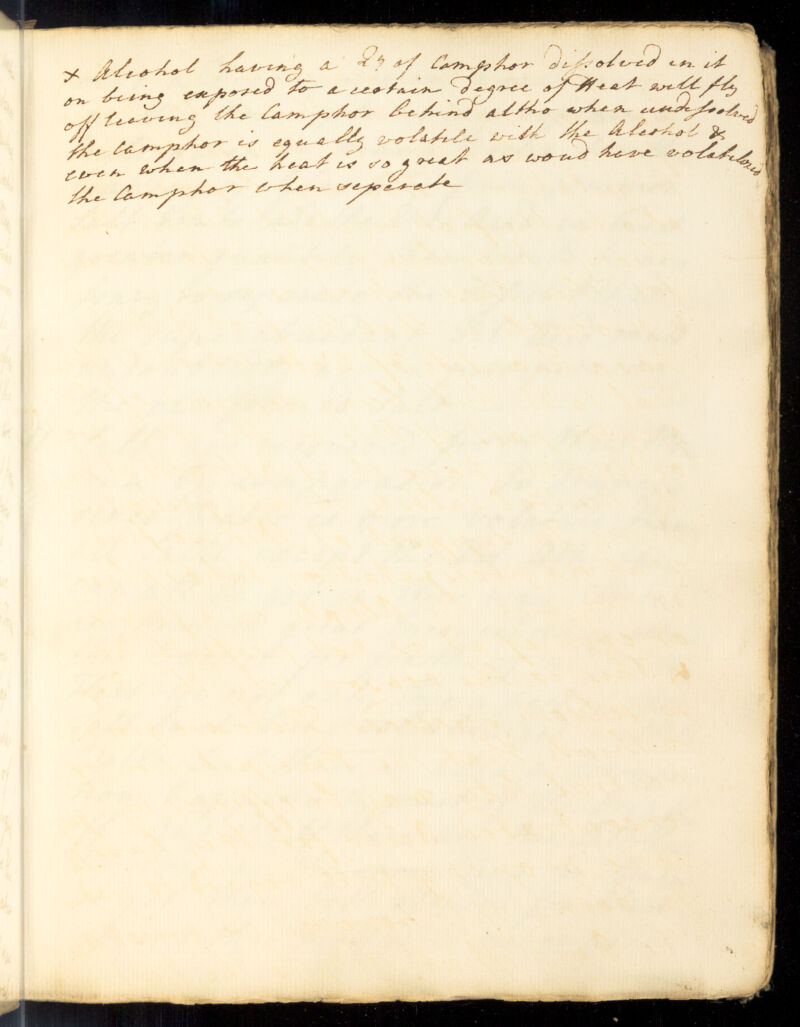 x Alcohol having a Qy of Camphor dissolved in it
on being exposed to a certain degree of Heat will fly
off leaving the Camphor behind altho when undissolved
the Camphor is equally volatile with the Alcohol &
even when the heat is so great as woud have volatilized
the Camphor when seperate